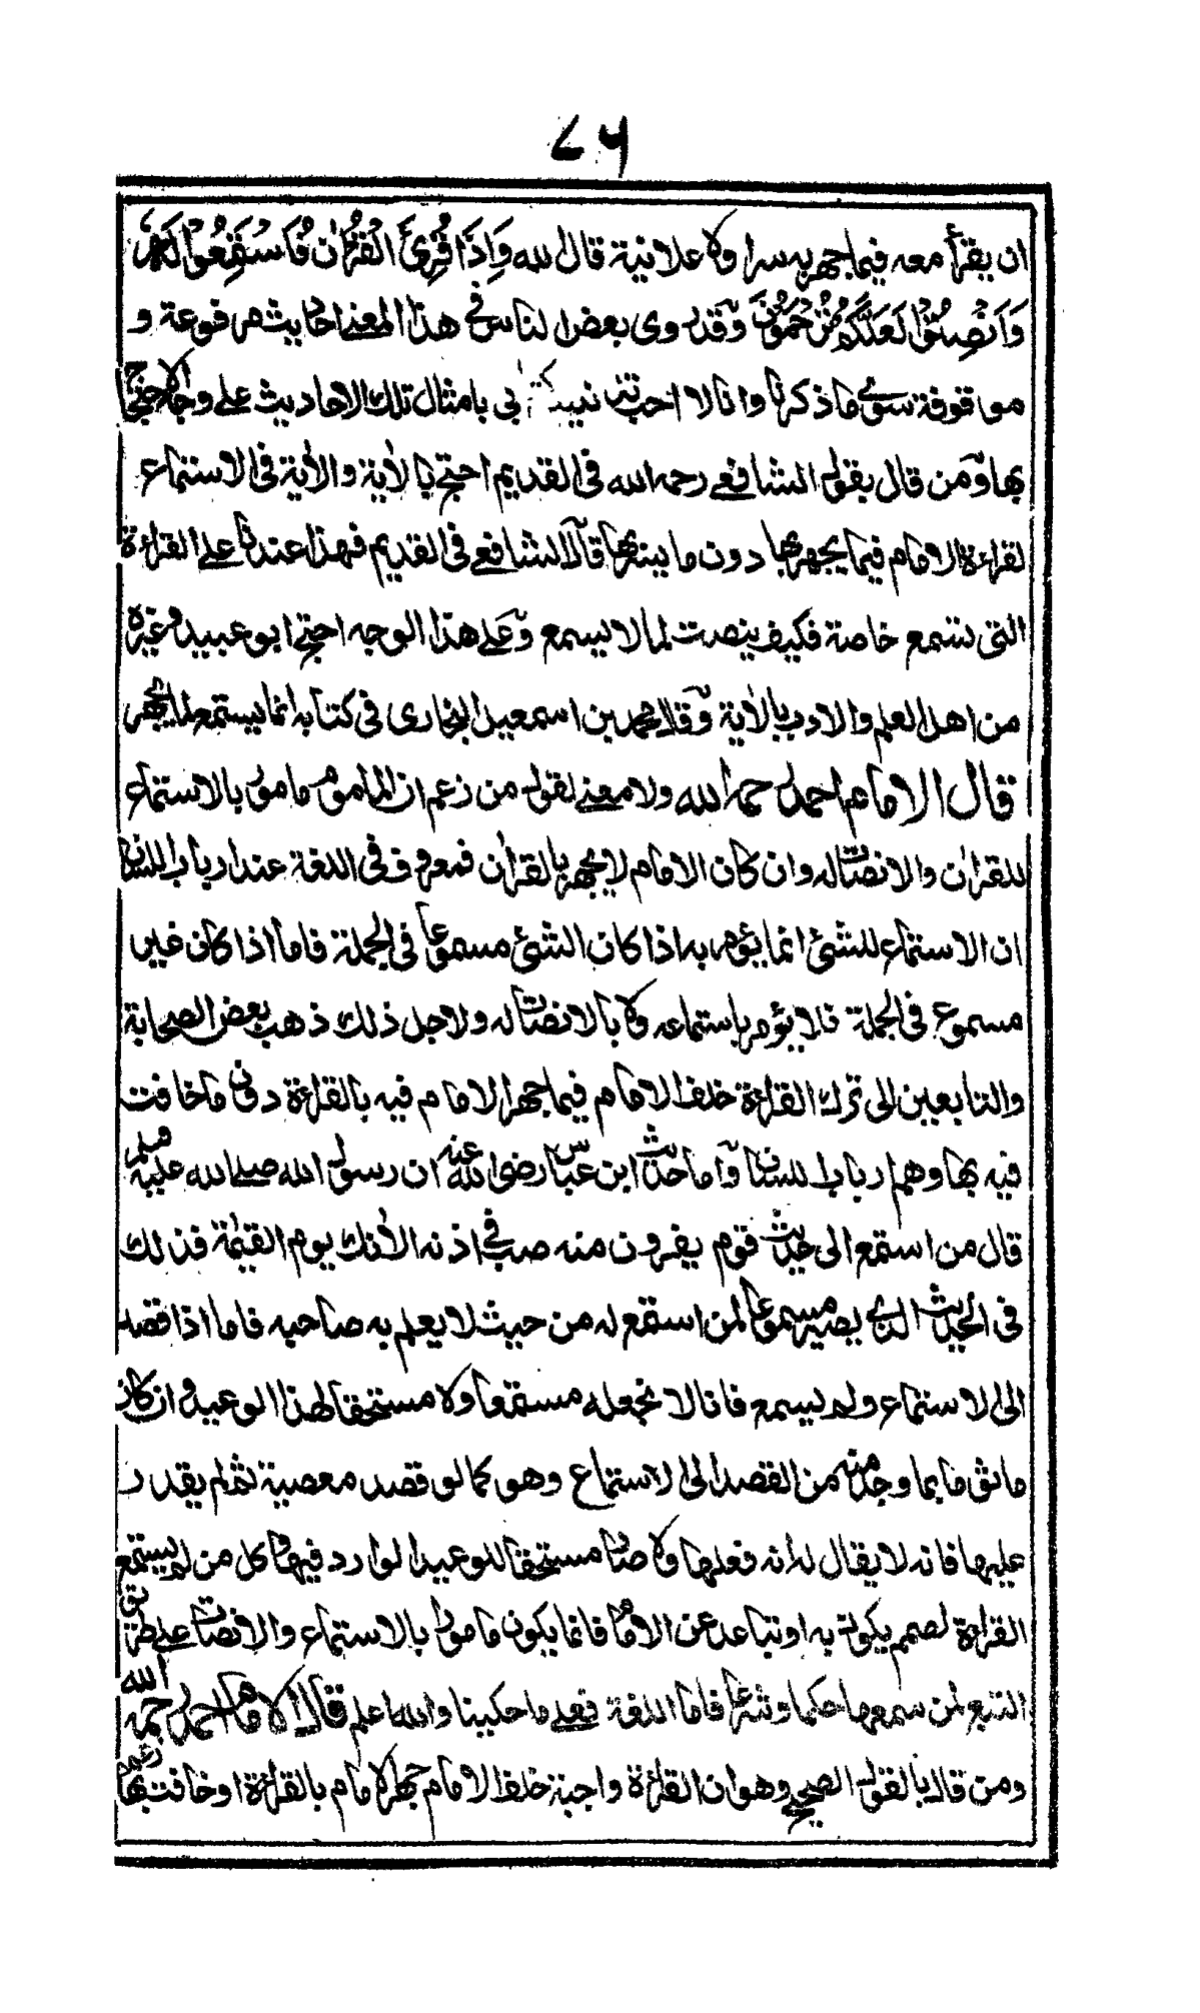 ٧٦
ان يقرأ معه فيما جهر به سرا ولا علانية قال لله وَاِذَا قُرِئَ الْقُرْاٰنُ فَاسْتَمِعُوْا لَهٗ
وَاَنْصِتُوْا لَعَلَّكُمْ تُرْحَمُوْنَ وقد روى بعض لناس فى هذا المعنى احاديث مرفوعة و
موقوفة سوى ما ذكرنا وانا لا احب بى بامثال تلك الاحاديث على وجه الاحتجاج
بها ومن قال بقول الشافعى رحمه الله فى القديم احتج بالاٰية والاٰية فى الاستماع
لقراءة الامام فيما يجهر بها دون ما يسر بها قال الشافعى فى القديم فهذا عندنا على القراءة
التى تسمع خاصة فكيف ينصت لما لا يسمع وعلى هذا الوجه احتج ابو عبيد وغيره
من اهل العلم والادب بالاٰية وقال محمد بن اسمعيل البخارى فى كتابه انما يستمع لما يجهر
قال الامام احمد رحمه الله ولا معنى لقول من زعم ان الماموم مامور بالاستماع
للقراٰن والانصات له وان كان الامام لا يجهر بالقراٰن فمعروف فى اللغة عند ارباب اللسان
ان الاستماع للشئ انما يؤمر به اذا كان الشئ مسموعا فى الجملة فاما اذا كان غير
مسموع فى الجملة فلا يؤمر باستماعه ولا بالانصات له ولاجل ذلك ذهب بعض الصحابة
والتابعين الى ترك القراءة خلف الامام فيما جهر الامام فيه بالقراءة دون ما خافت
فيه بها وهم ارباب اللسان واما حديث ابن عباس رضى الله عنه ان رسول الله صلى الله عليه وسلم
قال من استمع الى حديث قوم يفرون منه صب فى اذنه الاٰنك يوم القيٰمة فذلك
فى الحديث الذى يصير مسموعا لمن استمع له من حيث لا يعلم به صاحبه فاما اذا قصد
الى الاستماع ولم يسمع فانا لا نجعله مستمعا ولا مستحقا لهذا الوعيد وان كان
ماثوما بما وجد منه من القصد الى الاستماع وهو كما لو قصد معصية ثم لم يقدر
عليها فانه لا يقال له انه فعلها ولا صار مستحقا للوعيد الوارد فيها وكل من لم يستمع
القراءة لصمم يكون به او تباعد عن الامام فانما يكون مامورا بالاستماع والانصات على طريق
التبع لمن سمعها حكما وشرعا فاما اللغة فعلى ما حكينا والله اعلم قال الامام احمد رحمه الله
ومن قال بالقول الصحيح وهو ان القراءة واجبة خلف الامام جهر الامام بالقراءة او خافت بها